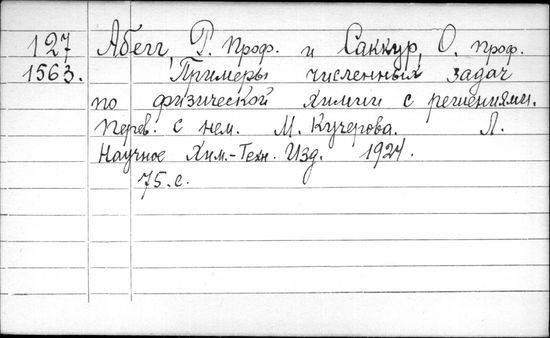 127 Абегг, Р. проф. и Саккур, О. проф.
1563. Примеры численных задач
по физической химии с решениями.
Перев. с нем. М. Кучерова. Л.
Научное Хим.-Техн. Изд. 1924.
75.с.